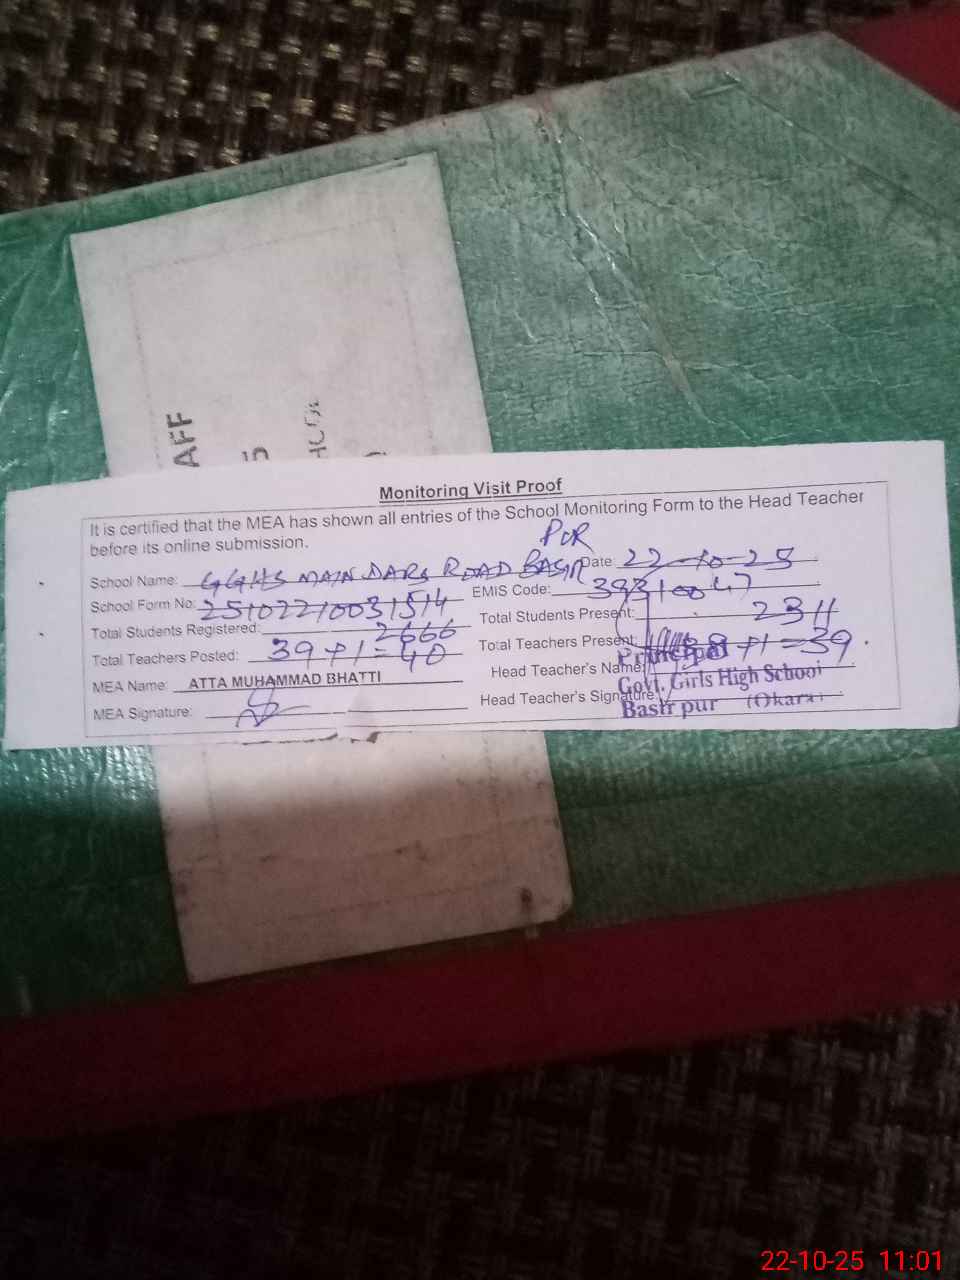 AFF
Monitoring Visit Proof
It is certified that the MEA has shown all entries of the School Monitoring Form to the Head Teacher
before its online submission.
PUR
School Name: GGHS MAIN DARS ROAD BASIR Date: 22-10-25
School Form No: 25102210031514 EMIS Code: 39310047
Total Students Registered: 2666 Total Students Present: 2311
Total Teachers Posted: 39+1=40 Total Teachers Present: 38+1=39
MEA Name: ATTA MUHAMMAD BHATTI Head Teacher's Name:
MEA Signature: Head Teacher's Signature:
Principal
Govt. Girls High School
Basir pur (Okara)
22-10-25 11:01